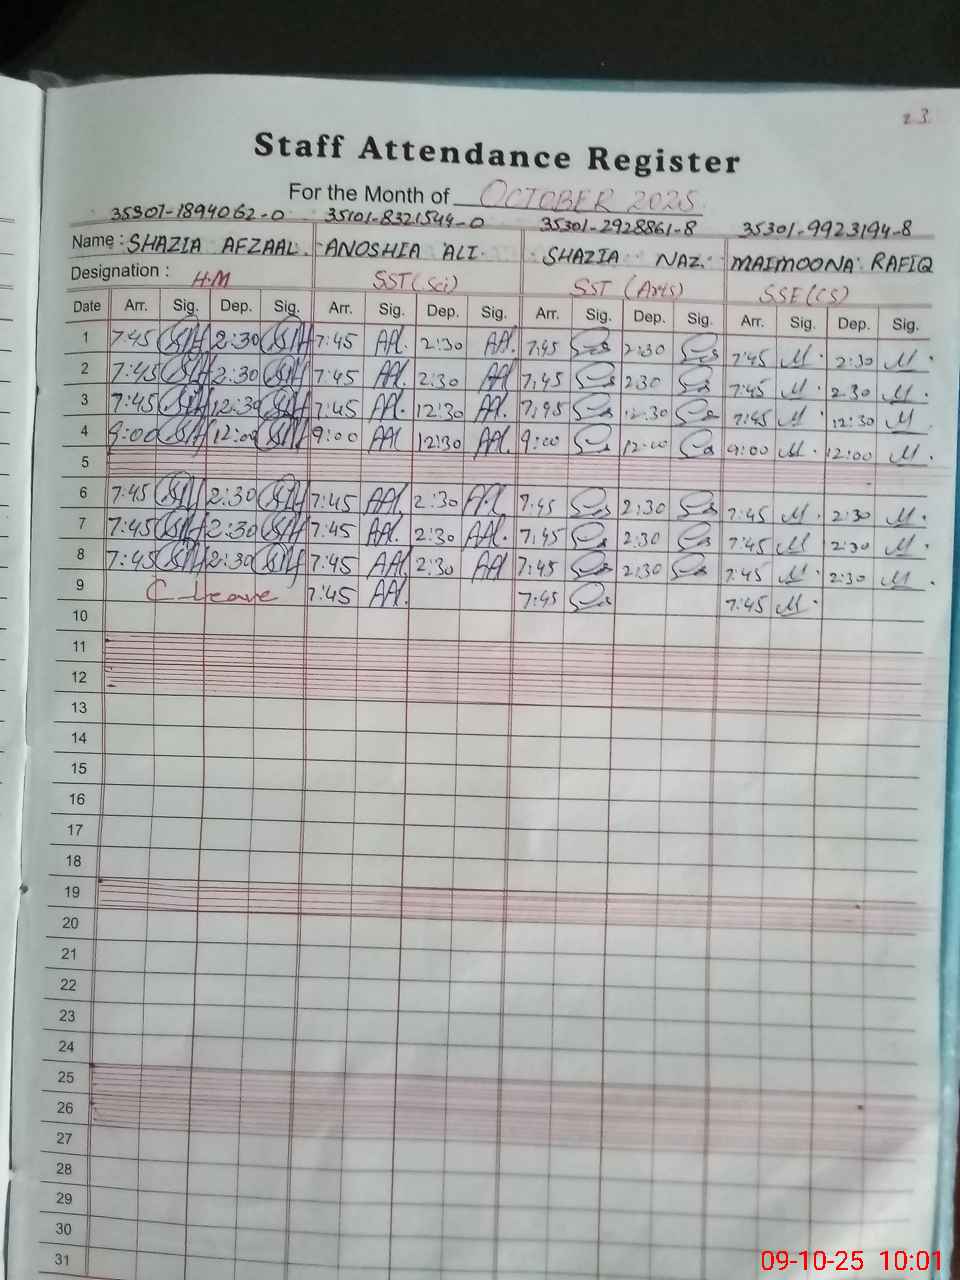 23
Staff Attendance Register
For the Month of OCTOBER 2025
35307-1894062-0 35101-8321544-0 35301-2928861-8 35301-9923194-8
Name : SHAZIA AFZAAL. ANOSHIA ALI. SHAZIA NAZ. MAIMOONA RAFIQ
Designation : H.M SST (Sci) SST (Arts) SSE (CS)
Date Arr. Sig. Dep. Sig. Arr. Sig. Dep. Sig. Arr. Sig. Dep. Sig. Arr. Sig. Dep. Sig.
1 7:45 2:30 7:45 AAl. 2:30 AAl. 7:45 2:30 7:45 M. 2:30 M.
2 7:45 2:30 7:45 AAl 2:30 AAl 7:45 2:30 7:45 M 2:30 M.
3 7:45 12:30 7:45 AAl. 12:30 AAl. 7:45 12:30 7:45 M 12:30 M
4 9:00 12:00 9:00 AAl 12:30 AAl. 9:00 12:00 9:00 M. 12:00 M.
5
6 7:45 2:30 7:45 AAl. 2:30 AAl. 7:45 2:30 7:45 M. 2:30 M.
7 7:45 2:30 7:45 AAl. 2:30 AAl. 7:45 2:30 7:45 M 2:30 M.
8 7:45 2:30 7:45 AAl. 2:30 AAl 7:45 2:30 7:45 M. 2:30 M.
9 C-Leave 7:45 AAl. 7:45 7:45 M.
10
11
12
13
14
15
16
17
18
19
20
21
22
23
24
25
26
27
28
29
30
31
09-10-25 10:01